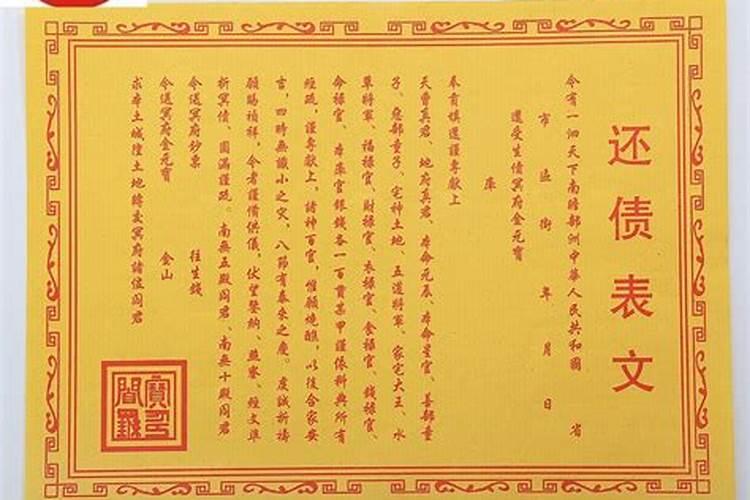 还债表文
今有一泗天下南瞻部洲中華人民共和國 省
市 區 街 年 月 日
還受生債冥府金元寶
庫
奉貢填還謹專獻上
天曹真君、地府真君、本命元辰、本命星官、善部童
子、惡部童子、宅神土地、五道將軍、家宅大王、水
草將軍、福祿官、財祿官、衣祿官、食祿官、錢祿官、
命祿官、本庫官銀錢各一百貫某甲謹依科典所有
經疏，謹專獻上，諸神百官，惟願燒醮，以後合家安
吉，四時無纖小之灾，八節有泰來之慶。虔誠祈禱
願賜禎祥，今者謹備供儀，伏望鑒納、燕寥、經文準
折冥債、圓滿謹疏。南無五殿閻君、南無十殿閻君
令送冥府鈔票 往生錢
令送冥府金元寶 金山
求本土城隍土地轉交冥府諸位閻君